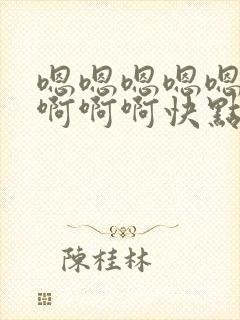 嗯嗯嗯嗯嗯
啊啊啊快點
陳桂林